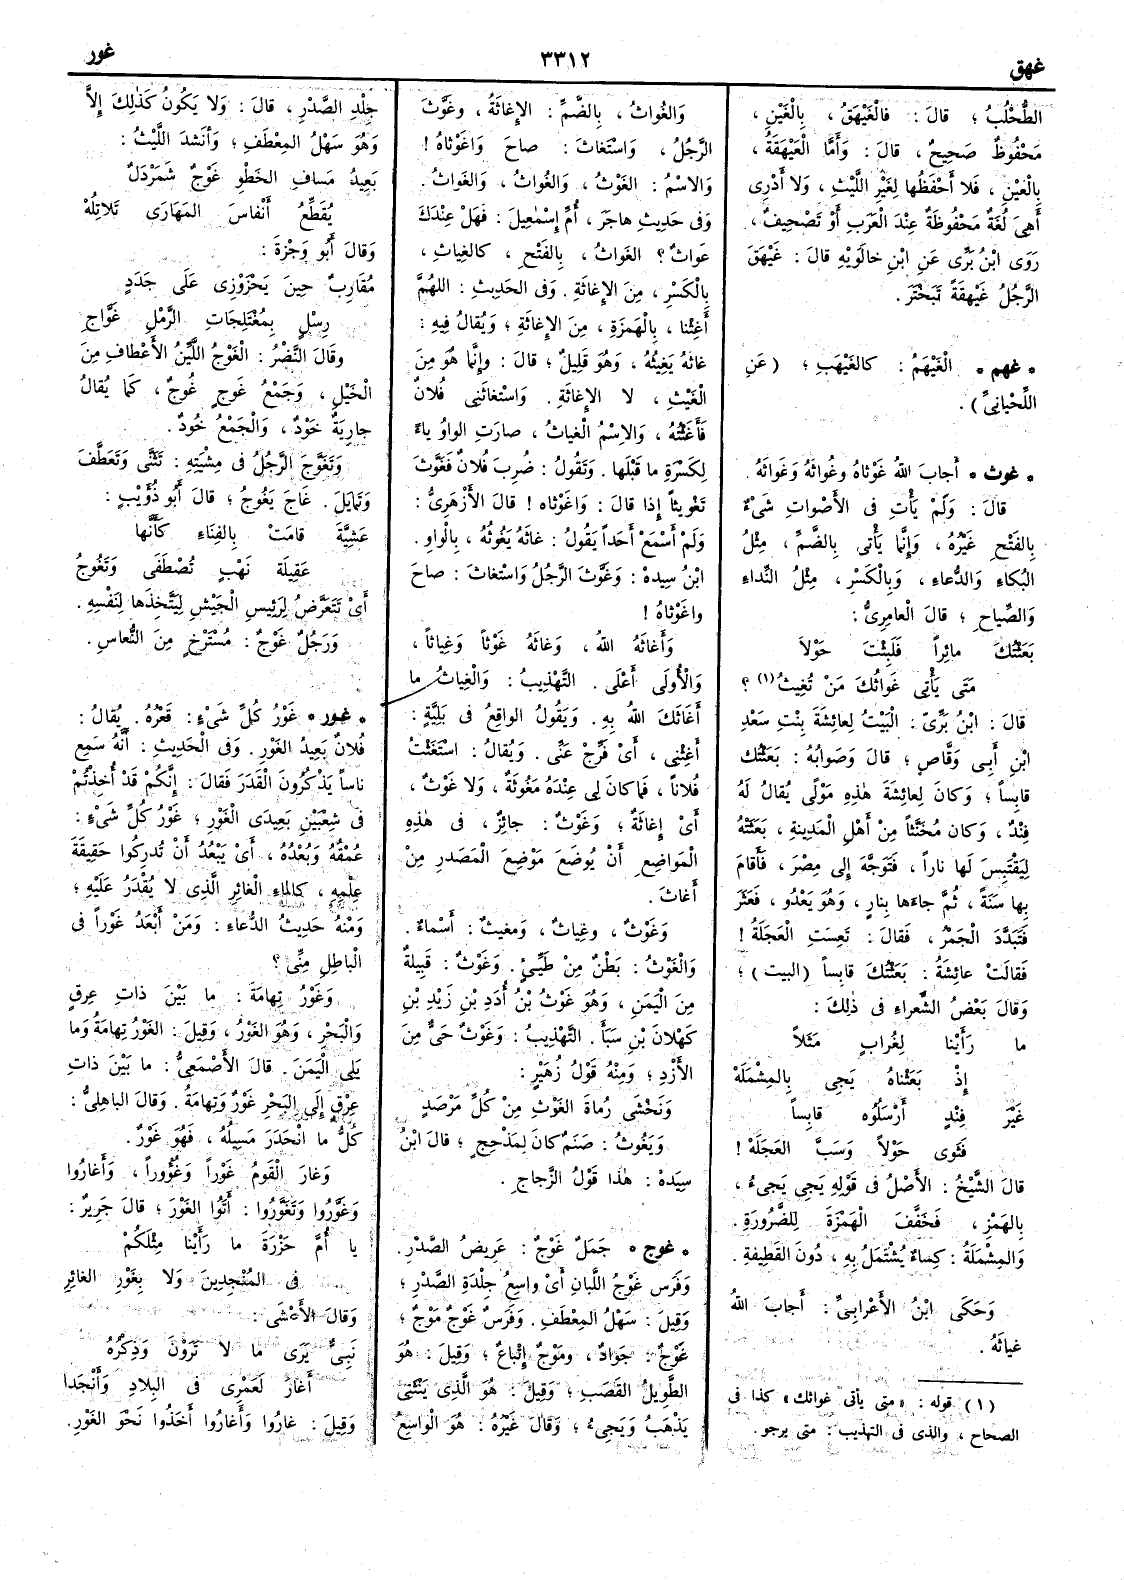 غهق
٣٣١٢
غور
الطُّحْلُبُ ؛ قالَ : فالْغَيْهَقُ ، بِالْغَيْنِ ،
مَحْفُوظٌ صَحِيحٌ ، قالَ : وَأَمَّا الْعَيْهَقَةُ ،
بِالْعَيْنِ ، فَلا أَحْفَظُها لِغَيْرِ اللَّيْثِ ، وَلا أَدْرِى
أَهِىَ لُغَةٌ مَحْفُوظَةٌ عِنْدَ الْعَرَبِ أَوْ تَصْحِيفٌ ،
رَوَى ابْنُ بَرِّى عَنِ ابْنِ خالَوَيْهِ قالَ : غَيْهَقَ
الرَّجُلُ غَيْهَقَةً تَبَخْتَرَ .
* غهم * الْغَيْهَمُ : كالغَيْهَبِ ؛ ( عَنِ
اللِّحْيانِىِّ ) .
* غوث * أَجابَ اللهُ غَوْثاهُ وغُواثَهُ وَغَواثَهُ .
قالَ : وَلَمْ يَأْتِ فى الأَصْواتِ شَىْءٌ
بِالفَتْحِ غَيْرُهُ ، وَإِنَّما يَأْتى بِالضَّمِّ ، مِثْلُ
البُكاءِ وَالدُّعاءِ ، وَبِالْكَسْرِ ، مِثْلُ النِّداءِ
وَالصِّياحِ ؛ قالَ الْعامِرِىُّ :
بَعَثْتُكَ مائِراً فَلَبِثْتَ حَوْلاَ
مَتَى يَأْتِى غَواثُكَ مَنْ تُغِيثُ (١) ؟
قالَ : ابْنُ بَرِّىّ : الْبَيْتُ لِعائِشَةَ بِنْتِ سَعْدِ
ابْنِ أَبِى وَقَّاصٍ ؛ قالَ وَصَوابُهُ : بَعَثْتُكَ
قابِساً ؛ وَكانَ لِعائِشَةَ هٰذِهِ مَوْلًى يُقالُ لَهُ
فِنْدٌ ، وَكان مُخَنَّثاً مِنْ أَهْلِ الْمَدِينَةِ ، بَعَثَتْهُ
لِيَقْتَبِسَ لَها ناراً ، فَتَوَجَّهَ إِلى مِصْرَ ، فَأَقامَ
بِها سَنَةً ، ثُمَّ جاءَها بِنارٍ ، وَهُوَ يَعْدُو ، فَعَثَرَ
فَتَبَدَّدَ الْجَمْرُ ، فَقالَ : تَعِسَتِ الْعَجَلَةُ !
فَقالَتْ عائِشَةُ : بَعَثْتُكَ قابِساً (البيت) ؛
وَقالَ بَعْضُ الشُّعَراءِ فى ذٰلِكَ :
ما رَأَيْنا لِغُرابٍ مَثَلاً
إِذْ بَعَثْناهُ يَجِى بِالمِشْمَلَهْ
غَيْرَ فِنْدٍ أَرْسَلُوُه قابِساً
فَثَوى حَوْلاً وَسَبَّ الْعَجَلَهْ !
قالَ الشَّيْخُ : الأَصْلُ فى قَوْلِهِ يَجِى يَجِىءُ ،
بِالهَمْزِ ، فَخَفَّفَ الْهَمْزَةَ لِلضَّرُورَةِ .
وَالمِشْمَلَةُ : كِساءٌ يُشْتَمَلُ بِهِ ، دُونَ القَطِيفَةِ .
وَحَكَى ابْنُ الأَعْرابِىِّ : أَجابَ اللهُ
غياثَهُ .
(١) قوله : « متى يأتى غواثك » كذا فى
الصحاح ، والذى فى التهذيب : متى يرجو .
وَالغُواثُ ، بِالضَّمِّ : الإِغاثَةُ ، وغَوَّثَ
الرَّجُلُ ، وَاسْتَغاثَ : صاحَ وَاغَوْثاهُ !
وَالاسْمُ : الغَوْثُ ، وَالغُواثُ ، وَالغَواثُ .
وَفى حَدِيثِ هاجَرَ ، أُمِّ إِسْمٰعِيلَ : فَهَلْ عِنْدَكَ
غَواثٌ ؟ الغَواثُ ، بِالفَتْحِ ، كالغِياثِ ،
بِالْكَسْرِ ، مِنَ الإِغاثَةِ . وَفى الحَدِيثِ : اللهُمَّ
أَغِثْنا ، بِالْهَمْزَةِ ، مِنَ الإِغاثَةِ ؛ وَيُقالُ فِيهِ :
غاثَهُ يَغِيثُهُ ، وَهُوَ قَلِيلٌ ؛ قالَ : وإِنَّما هُوَ مِنَ
الْغَيْثِ ، لا الإِغاثَةِ . وَاسْتَغاثَنِى فُلانٌ
فَأَغَثْتُهُ ، وَالاِسْمُ الْغِياثُ ، صارَتِ الواوُ ياءً
لِكَسْرَةِ ما قَبْلَها . وَتَقُولُ : ضُرِبَ فُلانٌ فَغَوَّثَ
تَغْوِيثاً إِذا قالَ : وَاغَوْثاه ! قالَ الأَزْهَرِىُّ :
وَلَمْ أَسْمَعْ أَحَداً يَقُولُ : غاثَهُ يَغُوثُهُ ، بِالْواوِ .
ابْنُ سِيدهْ : وَغَوَّثَ الرَّجُلُ وَاسْتَغاثَ : صاحَ
واغَوْثاهُ !
وَأَغاثَهُ اللهُ ، وَغاثَهُ غَوْثاً وَغِياثاً ،
وَالْأُولَى أَعْلَى . التَّهْذِيبُ : وَالْغِياثُ ما
أَغاثَكَ اللهُ بِهِ . وَيَقُولُ الواقِعُ فى بَلِيَّةٍ :
أَغِثْنِى ، أَىْ فَرِّجْ عَنِّى . وَيُقالُ : اسْتَغَثْتُ
فُلاناً ، فَما كانَ لِى عِنْدَهُ مَغُوثَةٌ ، وَلا غَوْثٌ ،
أَىْ إِغاثَةٌ ؛ وَغَوْثٌ : جائِزٌ ، فى هٰذِهِ
الْمَواضِعِ أَنْ يُوضَعَ مَوْضِعَ الْمَصْدَرِ مِنْ
أَغاثَ .
وَغَوْثٌ ، وغِياثٌ ، وَمغيثٌ : أَسْماءٌ .
وَالْغَوْثُ : بَطْنٌ مِنْ طَيِّئٍ . وَغَوْثٌ : قَبِيلَةٌ
مِنَ الْيَمَنِ ، وَهُوَ غَوْثُ بْنُ أُدَدِ بْنِ زَيْدِ بْنِ
كَهْلانَ بْنِ سَبَأَ . التَّهْذِيبُ : وَغَوْثٌ حَىٌّ مِنَ
الأَزْدِ ؛ وَمِنْهُ قَوْلُ زُهَيْرٍ :
وَنَخْشَى رُماةَ الغَوْثِ مِنْ كُلِّ مَرْصَدٍ
وَيَغُوثُ : صَنَمٌ كانَ لِمَذْحِجٍ ؛ قالَ ابْنُ
سِيدَهْ : هٰذا قَوْلُ الزَّجاجِ .
* غوج * جَمَلٌ غَوْجٌ : عَرِيضُ الصَّدْرِ .
وَفَرَسٌ غَوْجُ اللَّبانِ أَىْ واسِعُ جِلْدَةِ الصَّدْرِ ؛
وَقِيلَ : سَهْلُ المِعْطَفِ . وَفَرَسٌ غَوْجٌ مَوْجٌ ؛
غَوْجٌ : جَوَادٌ ، ومَوْجٌ إِتْباعٌ ؛ وَقِيلَ : هُوَ
الطَّوِيلُ القَصَبِ ؛ وَقِيلَ : هُوَ الَّذِى يَنْثَنِى
يَذْهَبُ وَيَجِىءُ ؛ وَقالَ غَيْرُهُ : هُوَ الْواسِعُ
جِلْدِ الصَّدْرِ ، قالَ : وَلا يَكُونُ كَذٰلِكَ إِلاَّ
وَهُوَ سَهْلُ المِعْطَفِ ؛ وَأَنشدَ اللَّيْثُ :
بَعِيدُ مَسافِ الخَطْوِ غَوْجٌ شَمَرْدَلٌ
يُقَطِّعُ أَنْفاسَ المَهَارَى تَلاتِلُهْ
وَقالَ أَبُو وَجْزَةَ :
مُقارِبٌ حِينَ يَحْزَوْزِى عَلَى جَدَدٍ
رِسْلٍ بِمُغْتَلِجاتِ الرَّمْلِ غَوَّاجِ
وقَالَ النَّضْرُ : الْغَوْجُ اللَّيِّنُ الأَعْطافِ مِنَ
الْخَيْلِ ، وَجَمْعُ غَوجٍ غُوجٌ ، كَما يُقالُ
جارِيَةٌ خَوْدٌ ، وَالْجَمْعُ خُودٌ .
وَتَغَوَّجَ الرَّجُلُ فى مِشْيَتِهِ : تَثَنَّى وَتَعَطَّفَ
وَتَمايَلَ . غَاجَ يَغُوجُ ؛ قالَ أَبُو ذُؤَيْبٍ :
عَشِيَّةَ قامَتْ بِالفِنَاءِ كَأَنَّها
عَقِيلَة نَهْبٍ تُصْطَفَى وَتَغُوجُ
أَىْ تَتَعَرَّضُ لِرَئِيسِ الْجَيْشِ لِيَتَّخِذَها لِنَفْسِهِ .
وَرَجُلٌ غَوْجٌ : مُسْتَرْخٍ مِنَ النُّعاسِ .
* غور * غَوْرُ كُلِّ شَىْءٍ : قَعْرُهُ . يُقالُ :
فُلانٌ بَعِيدُ الْغَوْرِ . وَفى الْحَدِيثِ : أَنَّهُ سَمِعَ
ناساً يَذْكُرُونَ الْقَدَرَ فَقالَ : إِنَّكُمْ قَدْ أُخِذْتُمْ
فى شِعْبَيْنِ بَعِيدَى الْغَوْرِ ؛ غَوْرُ كُلِّ شَىْءٍ :
عُمْقُهُ وَبُعْدُهُ ، أَىْ يَبْعُدُ أَنْ تُدرِكُوا حَقِيقَةَ
عِلْمِهِ ، كالماءِ الْغائِرِ الَّذِى لا يُقْدَرُ عَلَيْهِ ؛
وَمْنُه حَدِيثُ الدُّعاءِ : وَمَنْ أَبْعَدُ غَوْراً فى
الْباطِلِ مِنِّى ؟
وَغَوْرُ تِهامَةَ : ما بَيْنَ ذاتِ عِرقٍ
وَالْبَحْرِ ، وَهُوَ الغَوْرُ ، وَقِيلَ : الغَوْرُ تِهامَةُ وَما
يَلِى الْيَمَنَ . قالَ الأَصْمَعِىُّ : ما بَيْنَ ذاتِ
عِرْقٍ إِلَى البَحْرِ غَوْرٌ وَتِهامَةُ . وَقالَ الباهِلِىُّ :
كُلُّ ما انْحَدَرَ مَسِيلُهُ ، فَهُوَ غَوْرٌ .
وَغارَ الْقَومُ غَوْراً وَغُؤُوراً ، وَأَغارُوا
وَغَوَّرُوا وَتَغَوَّرُوا : أَتَوُا الغَوْرَ ؛ قالَ جَرِيرٌ :
يا أُمَّ حَزْرَةَ ما رَأَيْنا مِثْلَكُمْ
فى المُنْجِدِينَ وَلا بِغَوْرِ الغائِرِ
وَقالَ الأَعْشَى :
نَبِىٌّ يَرَى ما لا تَرَوْنَ وَذِكْرُهُ
أَغارَ لَعَمْرِى فى البِلادِ وَأَنْجَدا
وَقِيلَ : غارُوا وَأَغارُوا أَخَذُوا نَحْوَ الغَوْرِ .